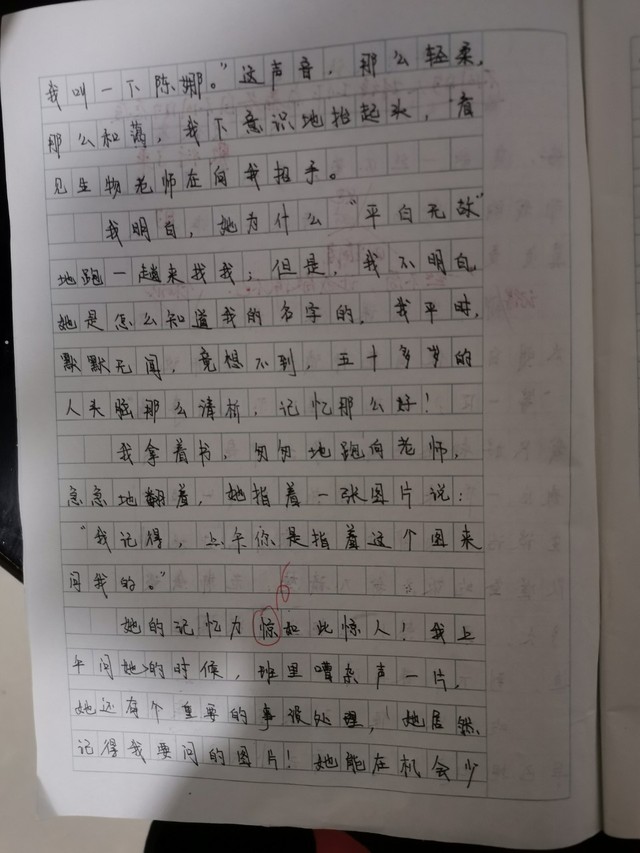 我叫一下陈娜。”这声音，那么轻柔，
那么和蔼，我下意识地抬起头，看
见生物老师在向我招手。
我明白，她为什么“平白无故”
地跑一趟来找我；但是，我不明白，
她是怎么知道我的名字的，我平时，
默默无闻，竟想不到，五十多岁的
人头脑那么清析，记忆那么好！
我拿着书，匆匆地跑向老师，
急急地翻着，她指着一张图片说：
“我记得，上午你是指着这个图来
问我的。”
她的记忆力惊如此惊人！我上
午问她的时候，班里嘈杂声一片，
她还有个重要的事没处理，她居然
记得我要问的图片！她能在机会少